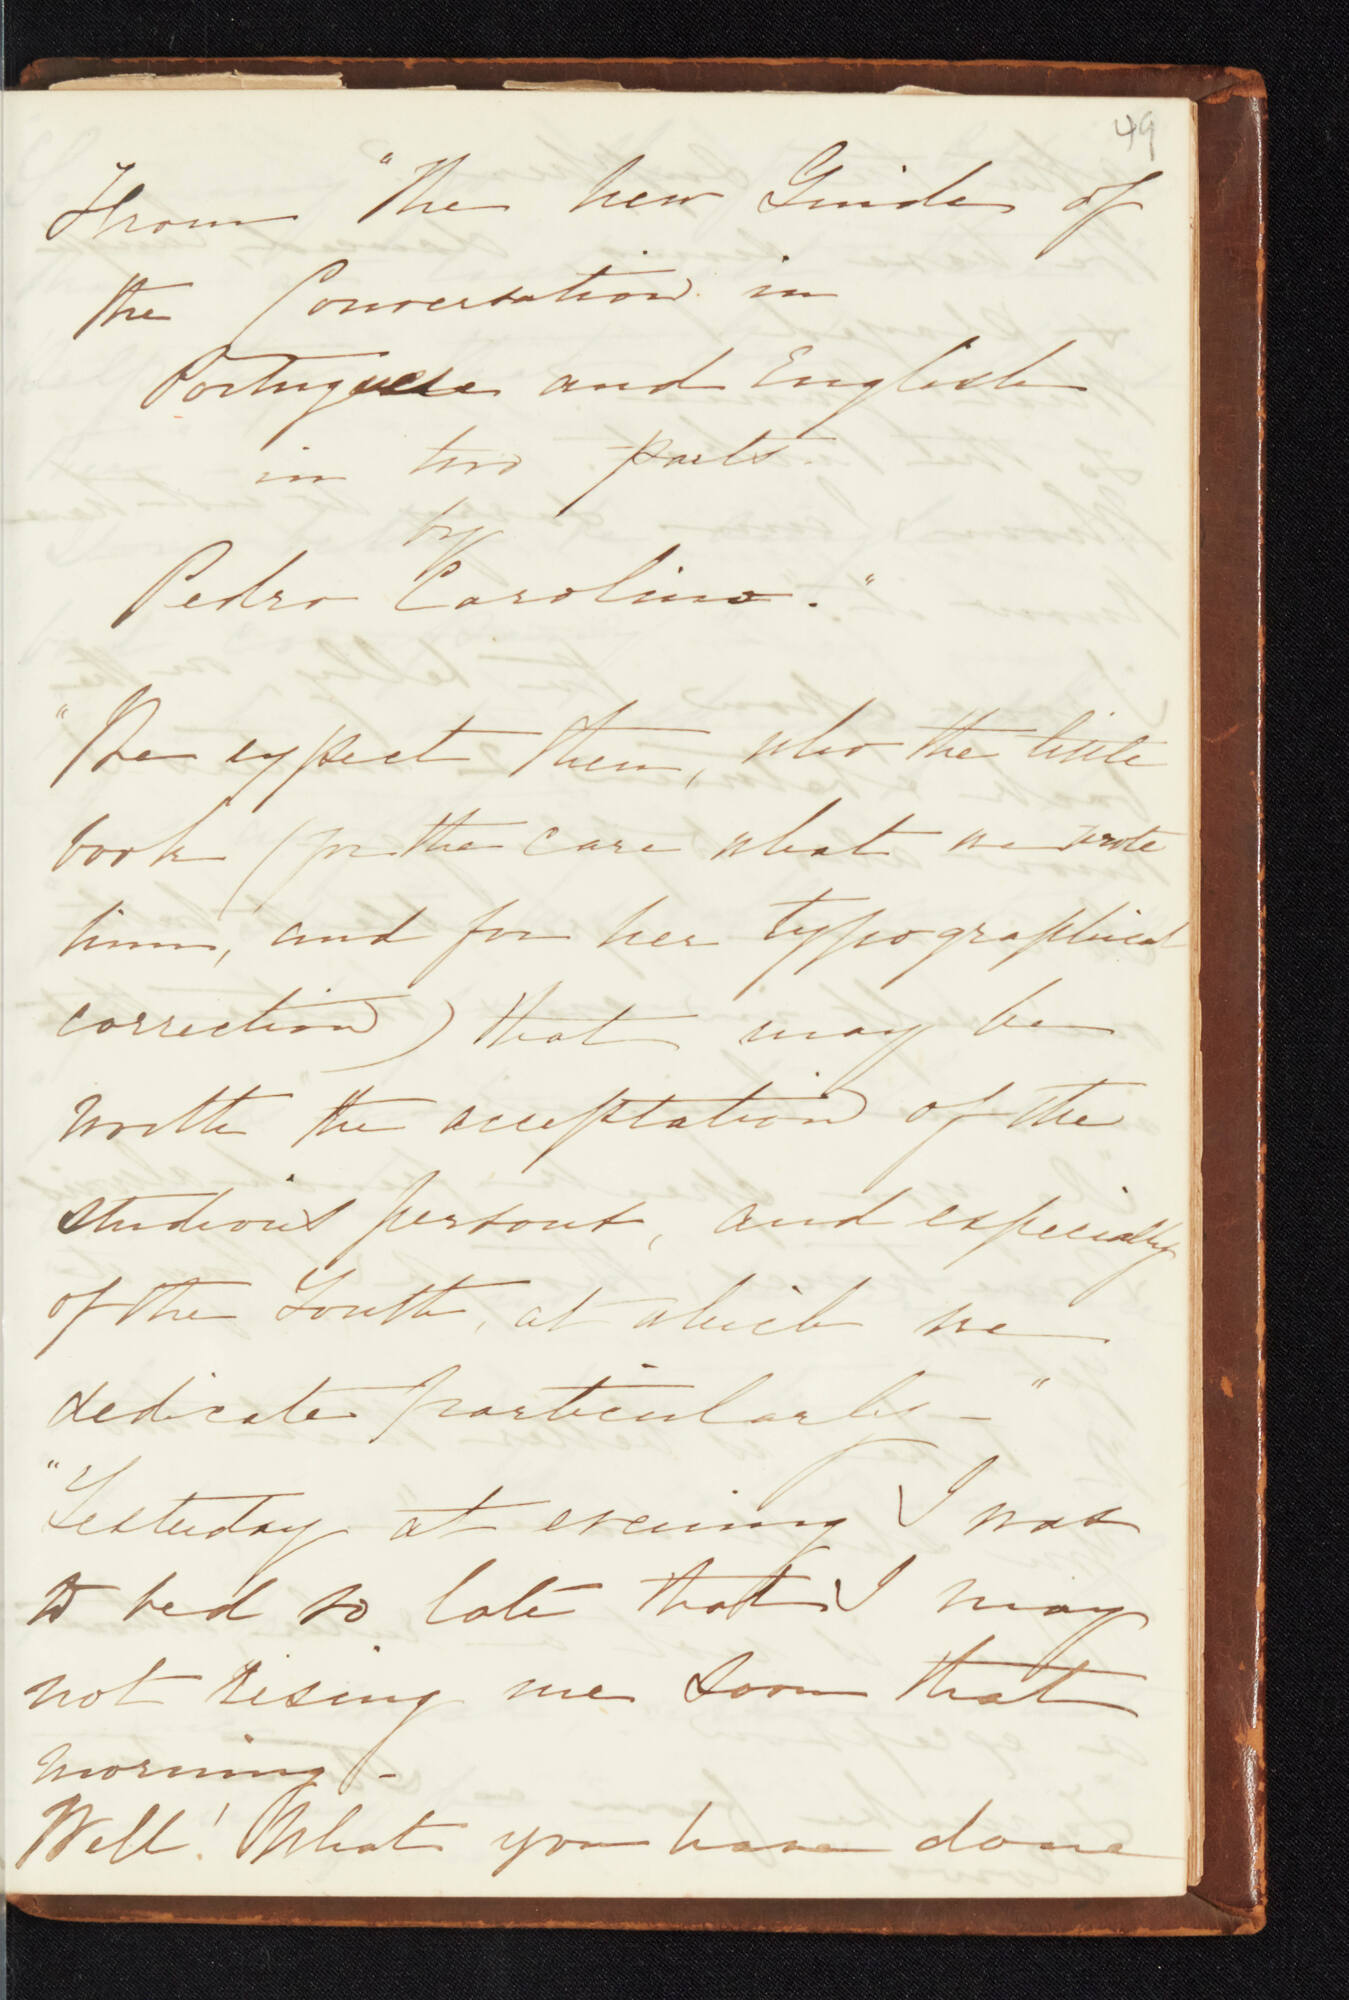 49
From "The new Guide of
the Conversation in
Portuguese and English
in two parts
by
Pedro Carolino."
"We expect then, who the little
book (for the care what we wrote
him, and for her typographical
correction) that may be
worth the acceptation of the
studious persons, and especially
of the Youth, at which we
dedicate particularly - "
"Yesterday at evening I was
to bed so late that I may
not rising me soon that
morning -
Well! What you have done